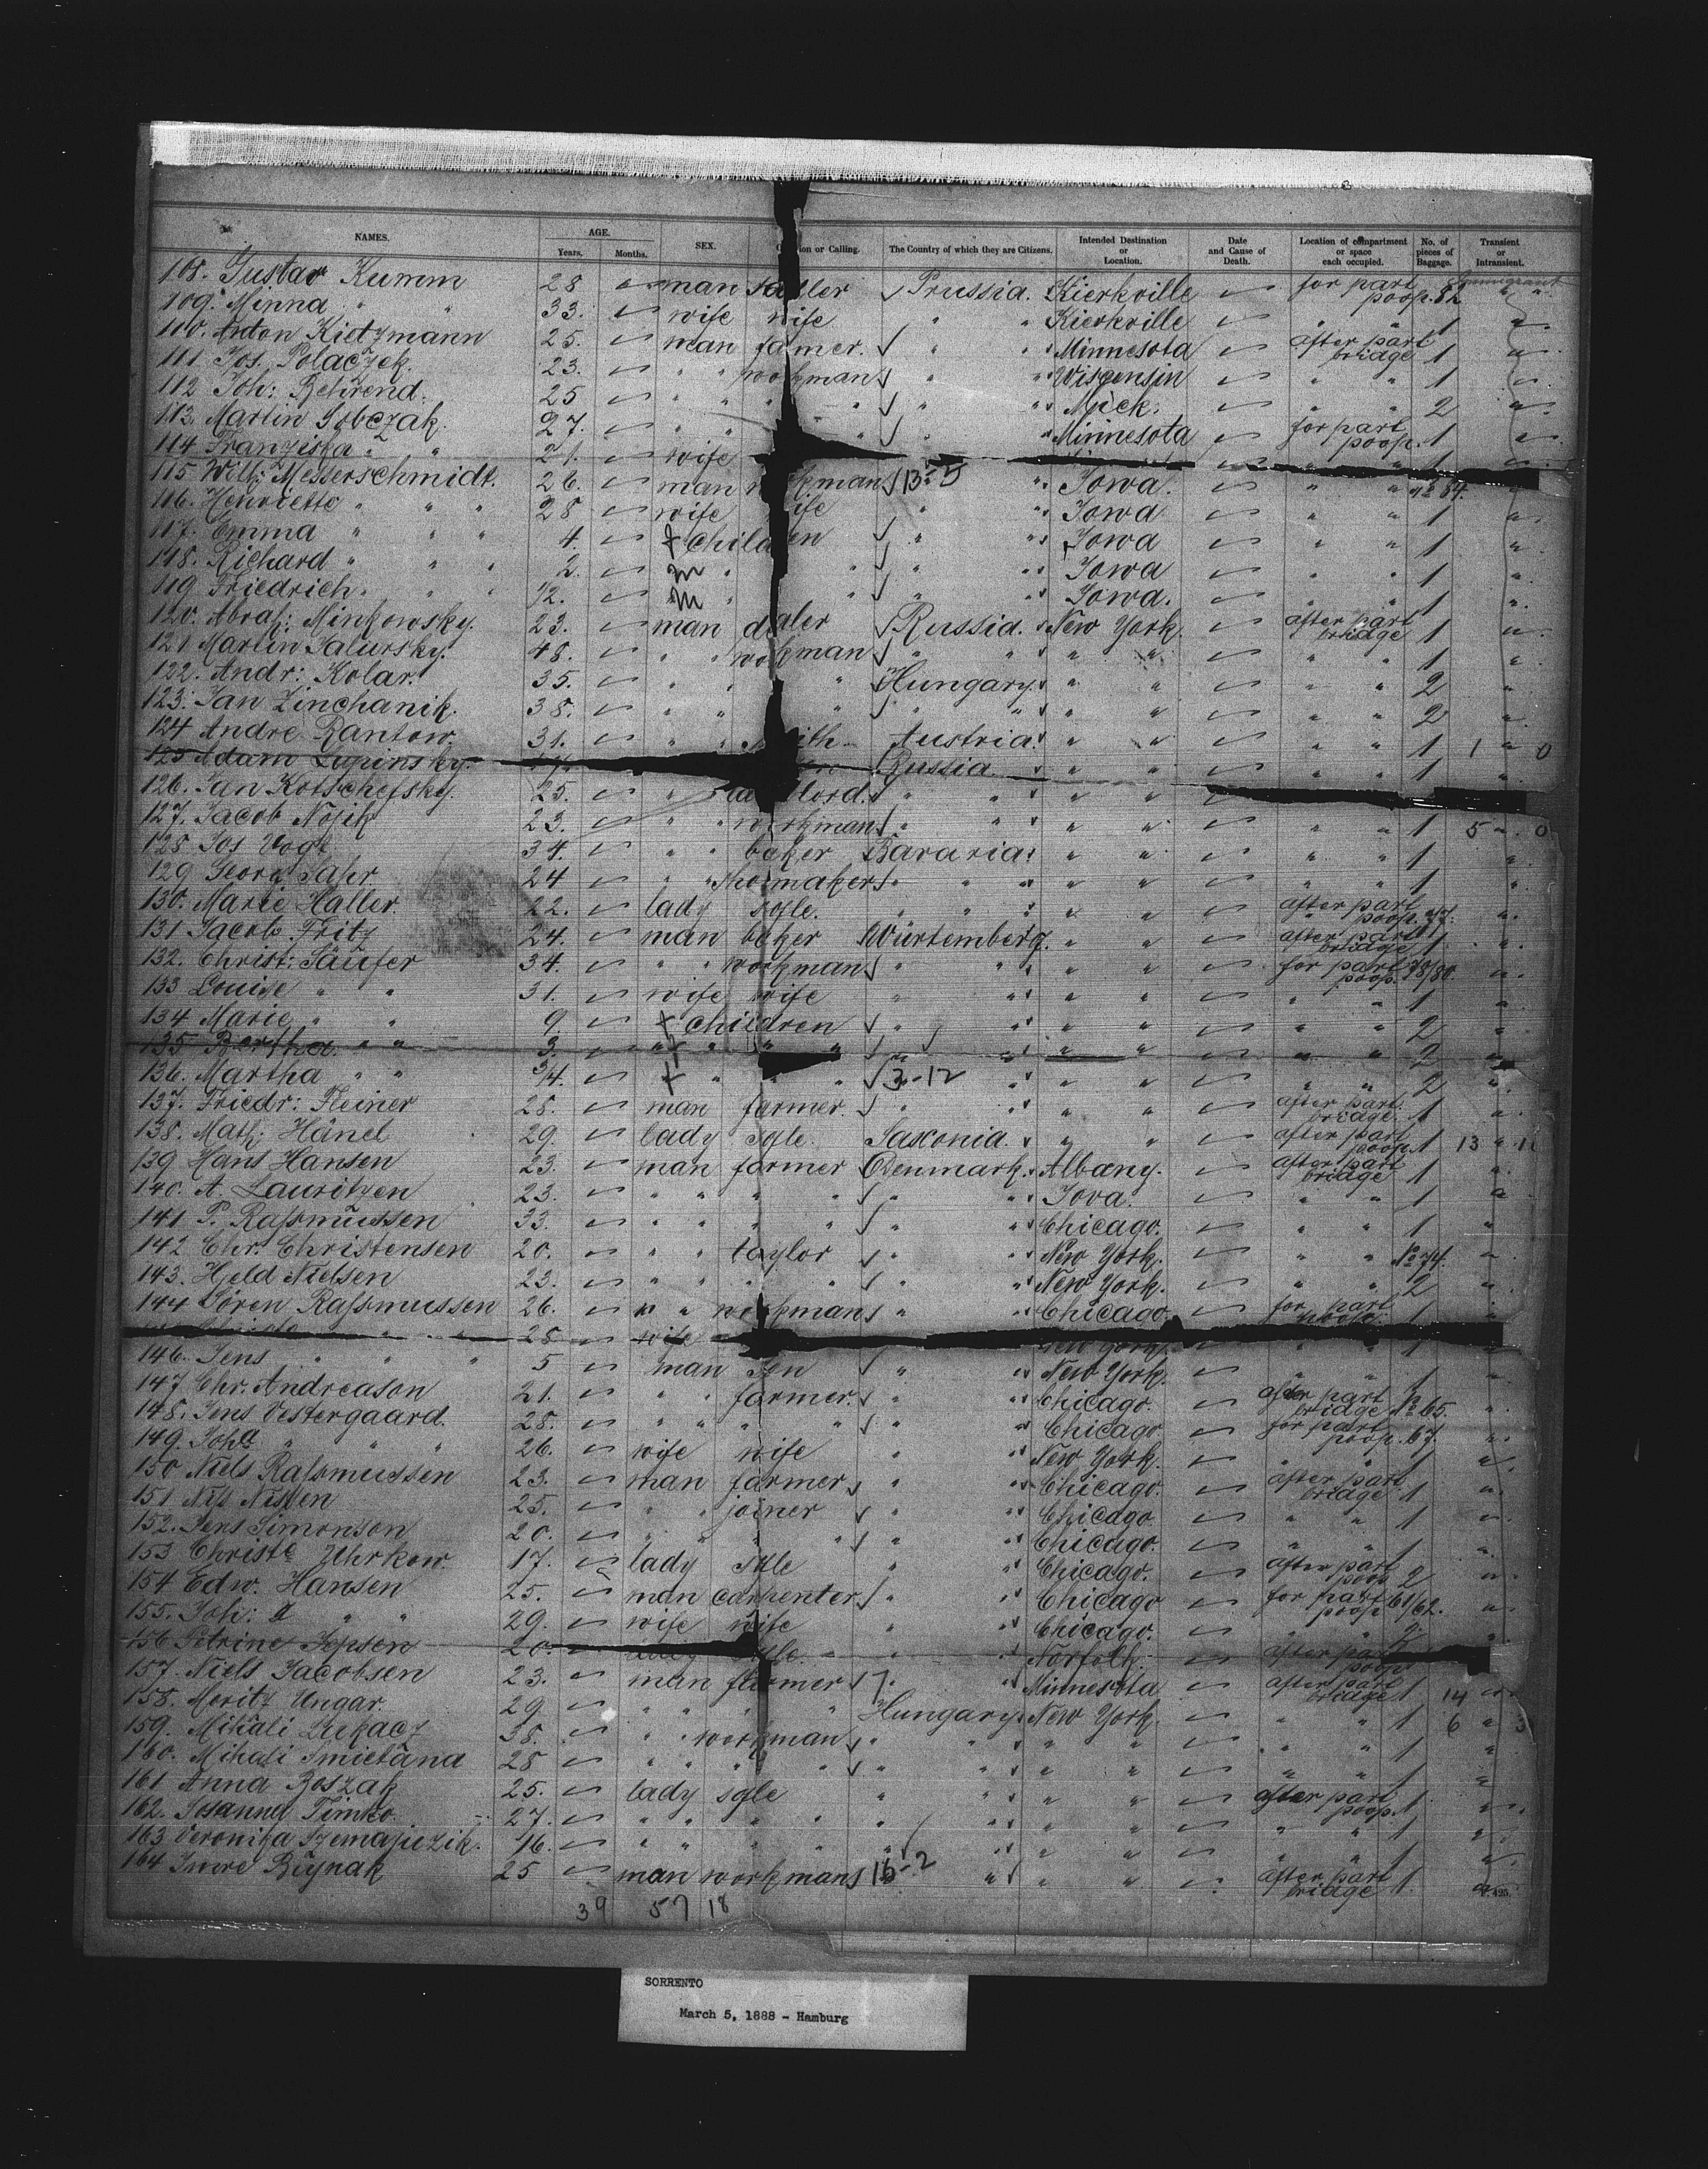 NAMES. AGE. Years. Months. SEX. on or Calling. The Country of which they are Citizens. Intended Destination or Location. Date and Cause of Death. Location of compartment or space each occupied. No. of pieces of Baggage. Transient or Intransient.
108. Gustav Kumm 28 man Prussia. for part poop. 82
109. Minna " " 33. wife wife " " 1 "
110. Anton Kietzmann 25. man famer. " " Minnesota after part bridge 1 "
111. Jos. Polaczek. 23. " " workman " " Wisconsin " " 1 "
112 Joh: Behrend. 25 " " " " " " Mick. " " 2 "
113. Martin 27. " " " " " " Minnesota for part poop. 1 "
114 Franziska " " 21. wife 1 "
115 Wilh: Messerschmidt. 26. man kman 13-5 " Iowa. " " No 84. "
116. Henriette " " " 28 wife ife " " Iowa " " 1 "
117. Emma " " " 4. f children " " Iowa " " 1 "
118. Richard " " " 2. m " " " " Iowa " " 1 "
119 Friedrich. " " " m " " " " Iowa. " " 1 "
120. Abrah: Minkowsky. 23. man dealer Russia. New York. after part bridge 1 "
121 Martin 48. " " workman " " " " " " 1 "
122. Andr: Kolar. 35. " " " Hungary. " " " " 2 "
123. Jan Zinchanik. 38. " " " " " " " " " 2 "
124 Andre Rantow. 31. " " ith Austria. " " " " 1 1 " 0
125 Adam Lupinsky. Russia. " " " " 1 "
126. Jan Kotschefsky. 25. " lord. " " " "
127. Jacob Nojik 23. " " workman " " " " " " 1 5 " 0
128 Jos Vogt 34. " " baker Bavaria. " " " " 1 "
129 Georg Sahr 24 " " shoemaker " " " " " " 1 "
130. Marie Haller. 22. lady sgle. " " " " after part poop. 77. "
131 Jacob Fritz 24. man baker Würtemberg. " " after part bridge 1 "
132. Christ: Säufer 34. " " workman " " " " for part poop. 78/80. "
133 Louise " " 31. wife wife " " " " " " 1 "
134 Marie " " 9. f children " " " " " " 2 "
135 Bertha " " 3. f " " " " " " " " 2 "
136. Martha " " 3/4. f " " " 3-12 " " " " " 2 "
137. Friedr: Reiner 28. man farmer. " " " " after part bridge. 1 "
138. Math: Hänel 29. lady sgle. Saxonia. " " after part poop. 1 13 " 11
139 Hans Hansen 23. man farmer Denmark. Albany. after part bridge 1 "
140. A. Lauritzen 23. " " " " " " Iova. " " 1 "
141 P. Rassmussen 33. " " " " " " Chicago. " " 1 "
142 Chr. Christensen 20. " " taylor " " New York. " " No 74. "
143. Hjeld Nielsen 23. " " " " " " New York. " " 2 "
144 Sören Rassmussen 26. " " workman " " Chicago. for part poop. 1 "
28. wife New York. " " 1 "
146. Jens " " " 5 man " " New York. " " 1 "
147 Chr. Andreason 21. " " farmer. " " Chicago. after part bridge No 65. "
148. Jens Vestergaard. 28. " " " " " " Chicago for part poop. 67. "
149. Joha " " " 26. wife wife " " New York. " " 1 "
150 Niels Rassmussen 23. man farmer " " Chicago. after part bridge 1 "
151 Nis Nissen 25. " " joiner " " Chicago " " 1 "
152. Jens Simonson 20. " " " " " " Chicago. " " 1 "
153 Christe Uhrkow. 17. lady sgle " " Chicago. after part poop 2 "
154 Edw. Hansen 25. man carpenter " " Chicago for part poop 61/62. "
155. Joh: a " " 29. wife wife " " Chicago. " " 2 "
156 Petrine Jepsen 20. sgle. " " Norfolk. after part poop
157. Niels Jacobsen 23. man farmer 7. " Minnesota after part bridge 1 14
158. Moritz Ungar. 29. " " " " Hungary. New York. " " 1 6 " 3
159. Mihali Lukacz 38. " " workman " " " " " " 1 "
160. Mihali Smietana 28 " " " " " " " " " " 1 "
161 Anna Roszak 25. lady sgle " " " " after part poop. 1 "
162. Sosanna Timko. 27. " " " " " " " " " " 1 "
163 Veronika 16. " " " " " " " " " " 1 "
164 Imre 25 man workman 16-2 " " " after part bridge 1. "
39 57 18
SORRENTO
March 5, 1888 - Hamburg